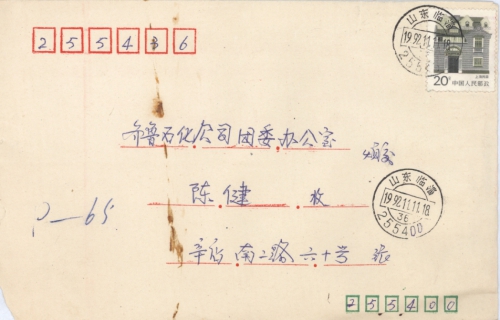 255436
山东临淄
1992.11.11.18
255400
20分 中国人民邮政
齐鲁石化公司团委办公室
烦交
陈健 收
山东临淄
1992.11.11.18
36
255400
P—65
辛店南二路六十号
255400